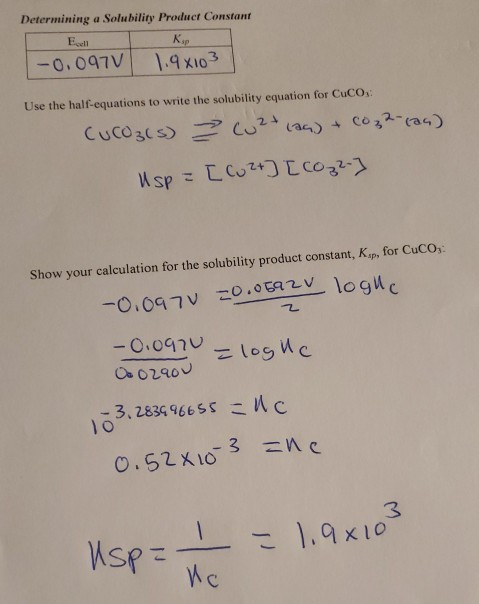 Determining a Solubility Product Constant
Ecell Ksp
-0.097V 1.9x10³
Use the half-equations to write the solubility equation for CuCO₃:
CuCO₃(s) ⇌ Cu²⁺(aq) + CO₃²⁻(aq)
Ksp = [Cu²⁺][CO₃²⁻]
Show your calculation for the solubility product constant, Ksp, for CuCO₃:
-0.097V = 0.0592V/2 logKc
-0.097V/0.0290V = log Kc
10^-3.283496655 = Kc
0.52x10⁻³ = Kc
Ksp = 1/Kc = 1.9x10³